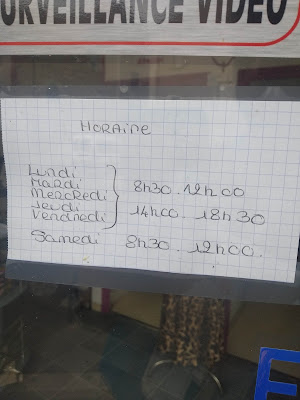 SURVEILLANCE VIDÉO
HORAIRE
Lundi
Mardi
Mercredi
Jeudi
Vendredi
8h30. 12h00
14h00. 18h30
Samedi 8h30. 12h00.